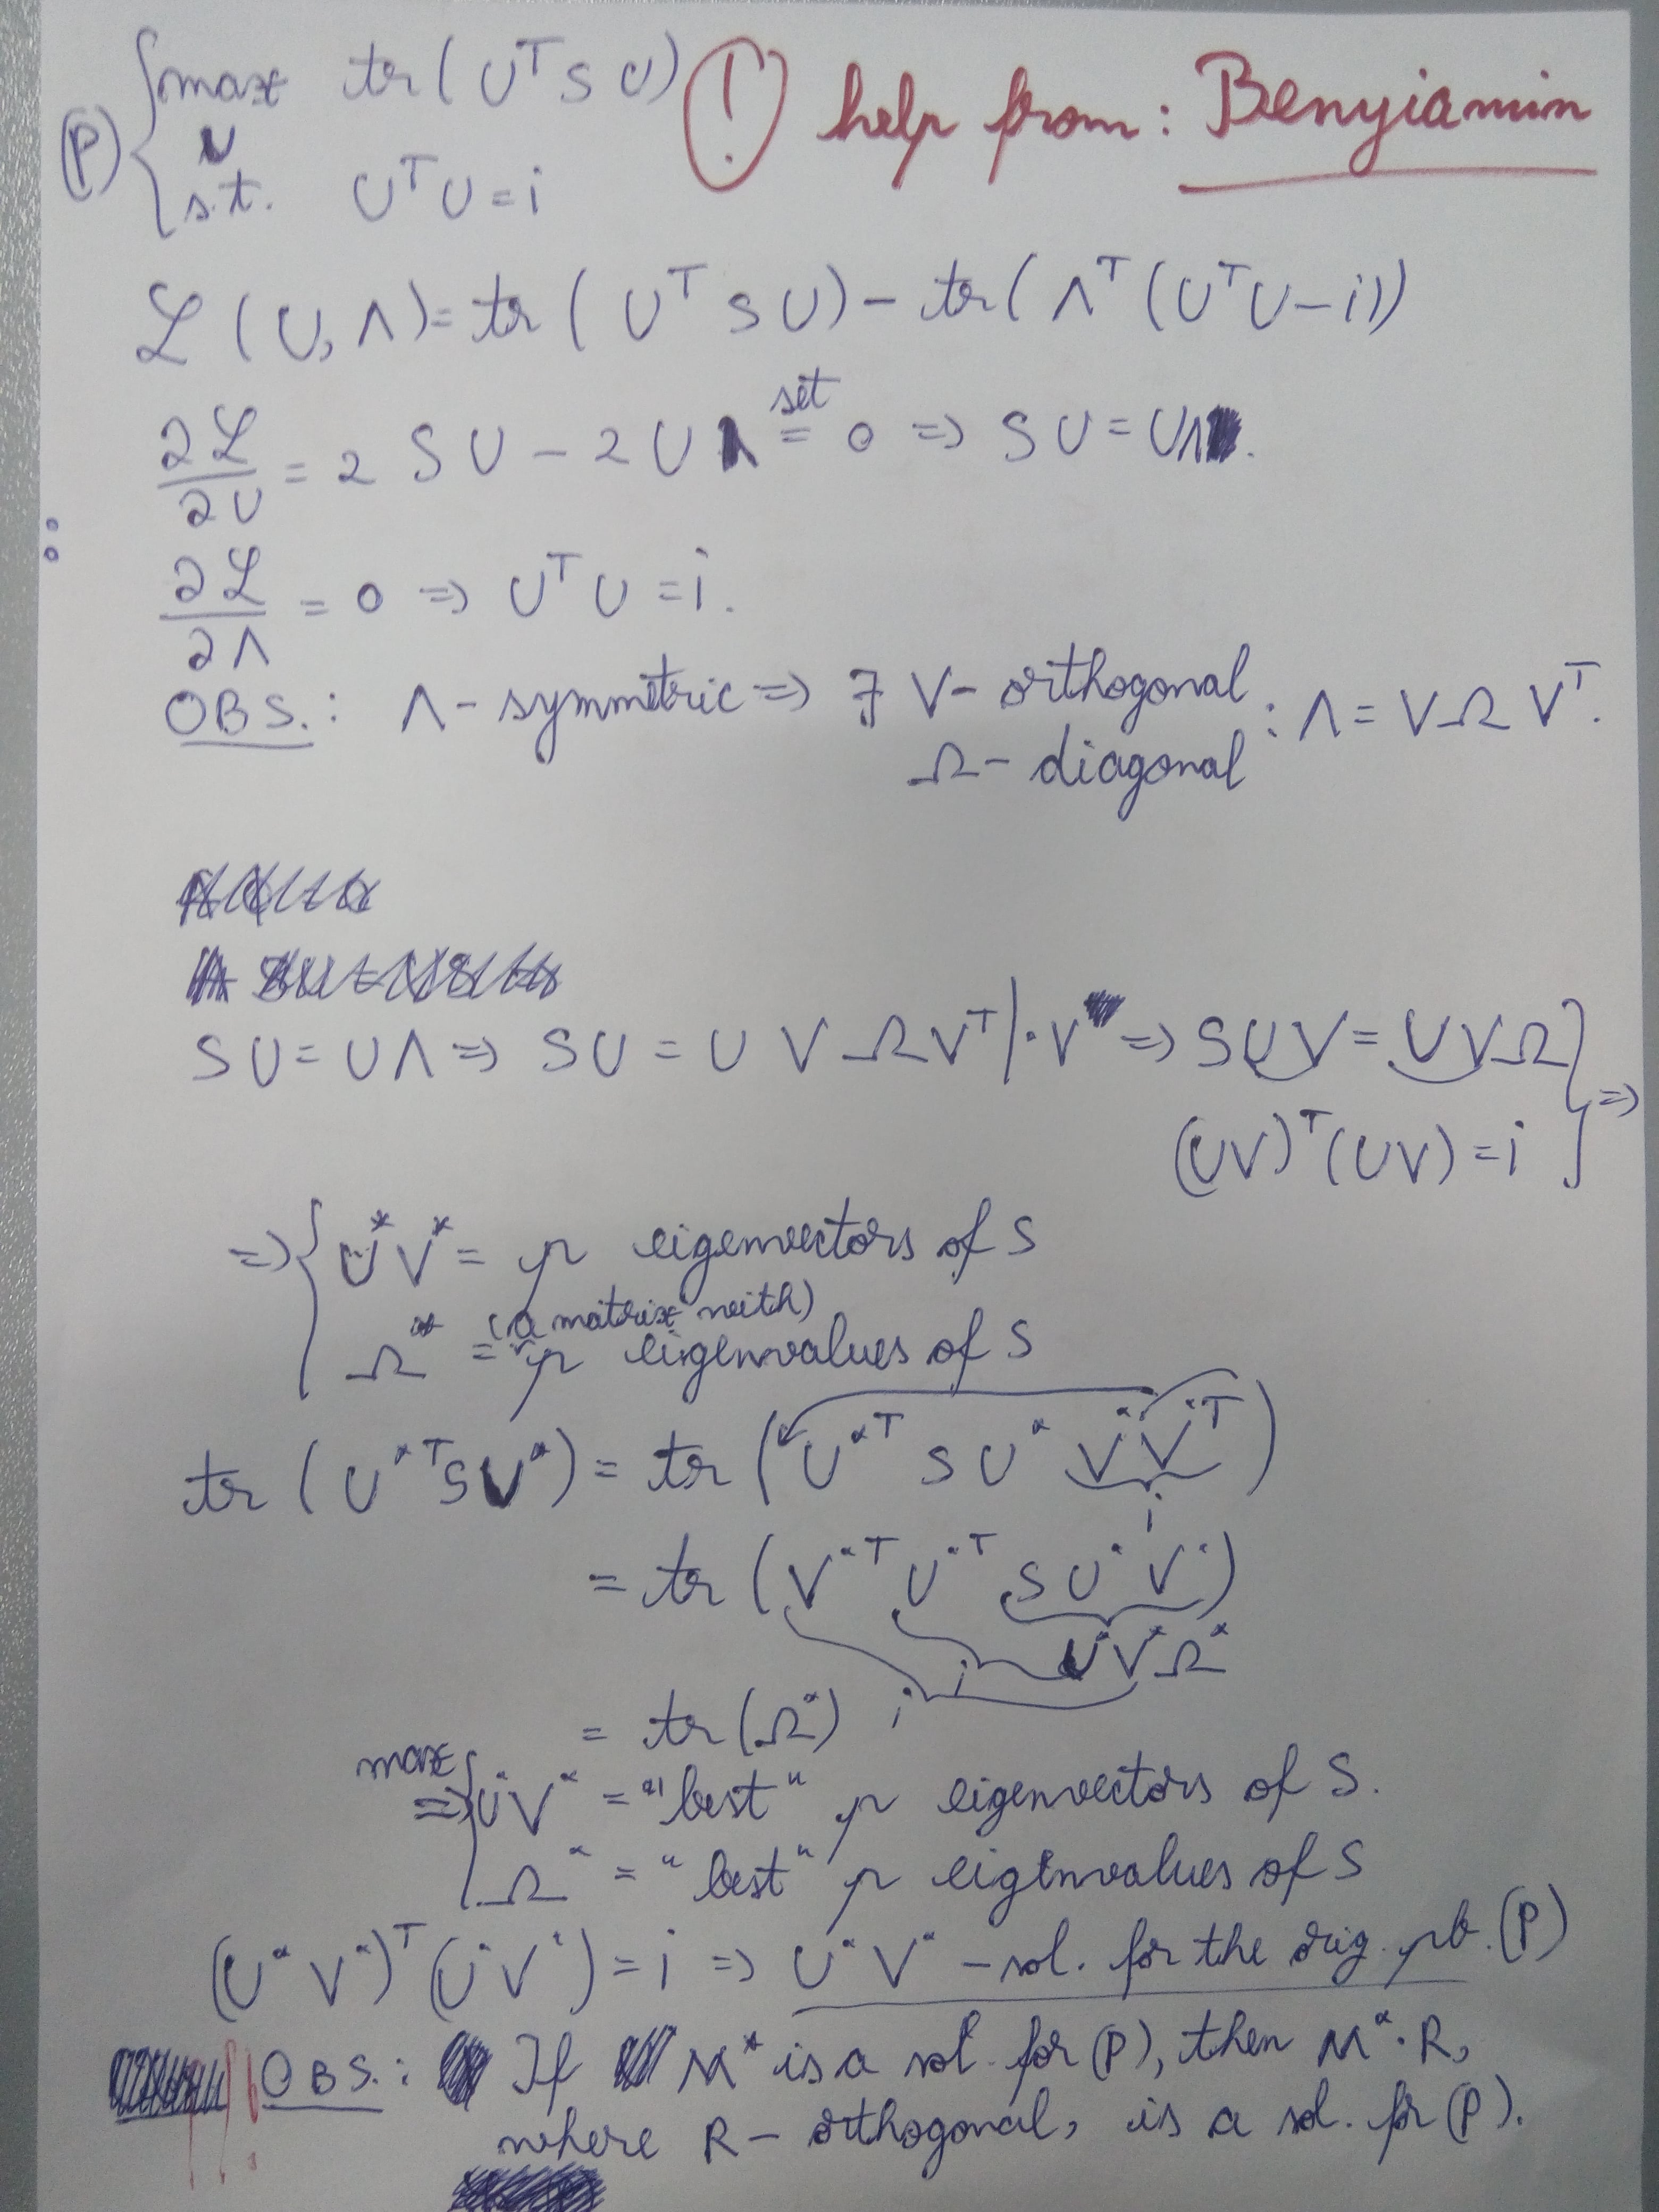 (P) { max tr(UᵀSU) (!) help from: Benyiamin
U
s.t. UᵀU = i
ℒ(U,Λ) = tr(UᵀSU) − tr(Λᵀ(UᵀU−i))
∂ℒ/∂U = 2SU − 2UΛ set= 0 ⇒ SU = UΛ.
∂ℒ/∂Λ = 0 ⇒ UᵀU = i.
OBS.: Λ - symmetric ⇒ ∃ V - orthogonal : Λ = VΩVᵀ.
Ω - diagonal
SU = UΛ ⇒ SU = UVΩVᵀ |·V ⇒ SUV = UVΩ } ⇒
(UV)ᵀ(UV) = i
⇒ { U*V* = p eigenvectors of S
(a matrix with)
Ω* = p eigenvalues of S
tr(U*ᵀSU*) = tr(U*ᵀSU*V*V*ᵀ)
i
= tr(V*ᵀU*ᵀSU*V*)
U*V*Ω*
i
i
= tr(Ω*)
max
⇒ { U*V* = "best" p eigenvectors of S.
Ω* = "best" p eigenvalues of S
(U*V*)ᵀ(U*V*) = i ⇒ U*V* - sol. for the orig. pb. (P)
OBS.: If M* is a sol. for (P), then M*·R,
where R - orthogonal, is a sol. for (P).